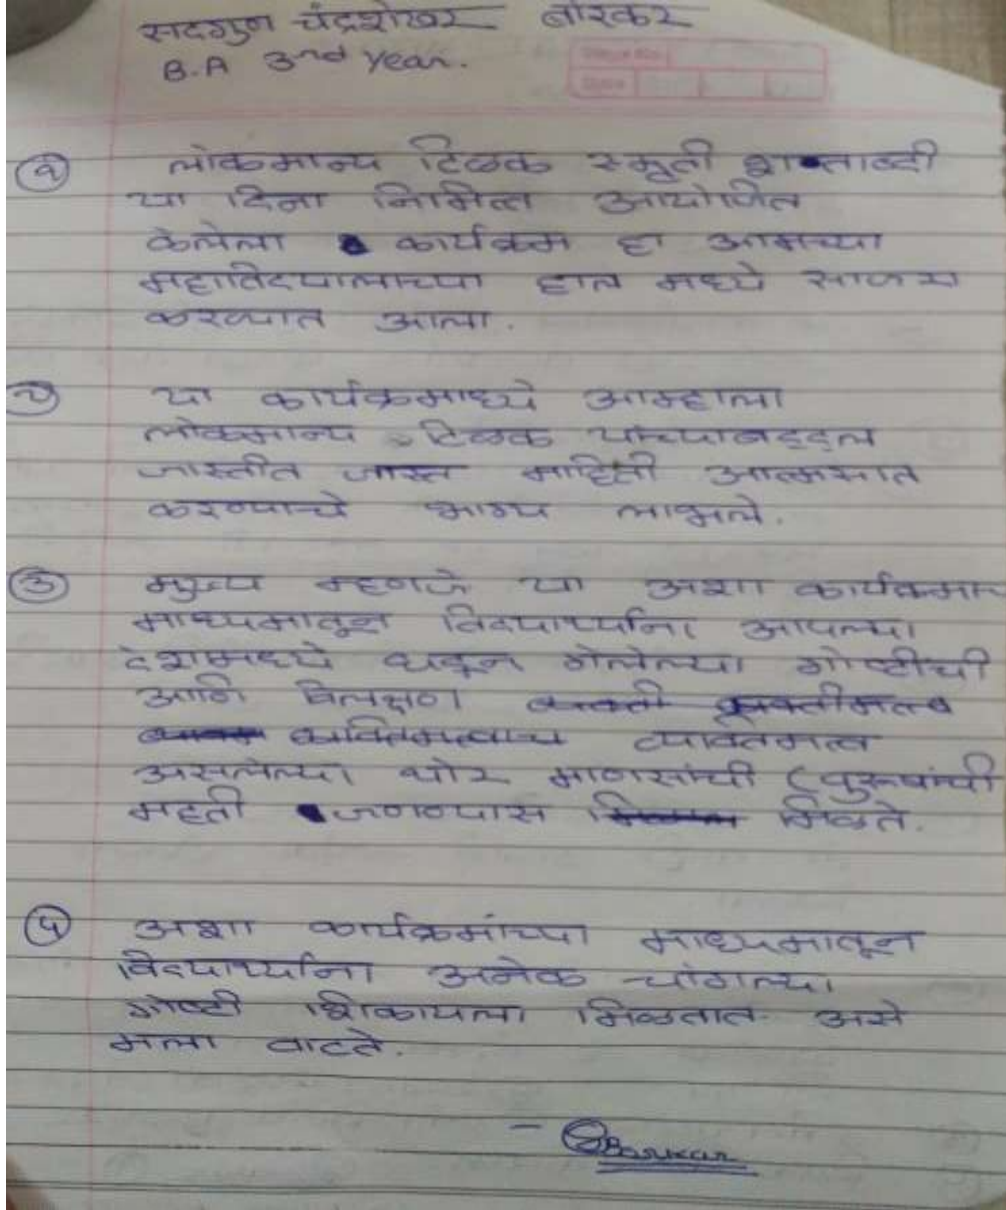 सदगुन चंद्रशेखर बोरकर
B.A 3rd Year.
१ लोकमान्य टिळक स्मृती शताब्दी
या दिना निमित्त आयोजित
केलेला कार्यक्रम हा आमच्या
महाविदयालाच्या हाल मध्ये साजरा
करण्यात आला.
२ या कार्यक्रमाध्ये आम्हाला
लोकमान्य टिळक यांच्याबद्दल
जास्तीत जास्त माहिती आत्मसात
करण्याचे भाग्य लाभले.
३ मुख्य म्हणजे या अशा कार्यक्रमा
माध्यमातून विदयार्थ्यांना आपल्या
देशामध्ये घडून गेलेल्या गोष्टीची
आणि विलक्षण
व्यक्तिमत्व
असलेल्या थोर माणसांची (पुरूषांची
महती जणण्यास मिळते.
५ अशा कार्यक्रमांच्या माध्यमातून
विदयार्थ्यांना अनेक चांगल्या
गोष्टी शिकायला मिळतात असे
मला वाटते.
- SBorkar